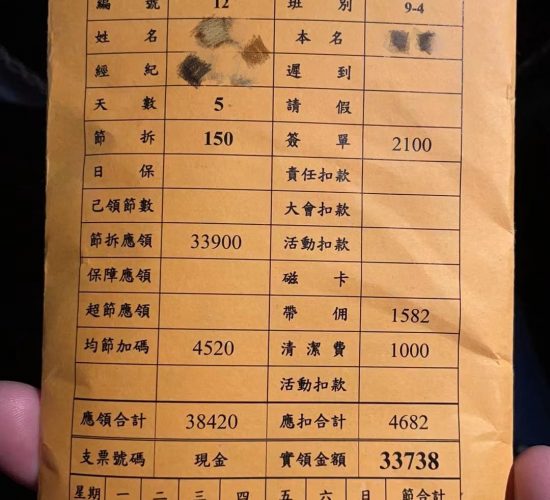 編 號 12 班 別 9-4
姓 名 本 名
經 紀 遲 到
天 數 5 請 假
節 拆 150 簽 單 2100
日 保 責任扣款
已領節數 大會扣款
節拆應領 33900 活動扣款
保障應領 磁 卡
超節應領 帶 佣 1582
均節加碼 4520 清 潔 費 1000
活動扣款
應領合計 38420 應扣合計 4682
支票號碼 現金 實領金額 33738
星期 一 二 三 四 五 六 日 節合計